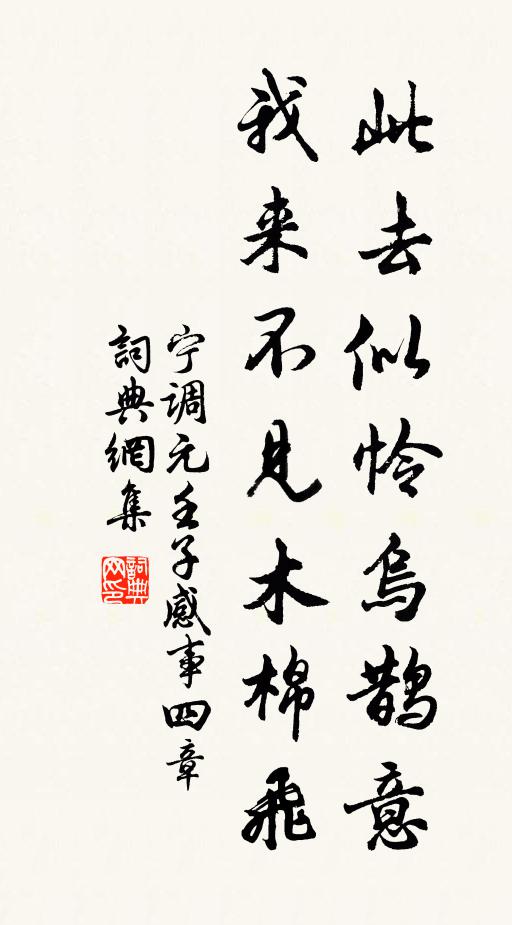 此去似怜乌鹊意
我来不见木棉飞
宁调元壬子感事四章
詞典網集
詞典网印